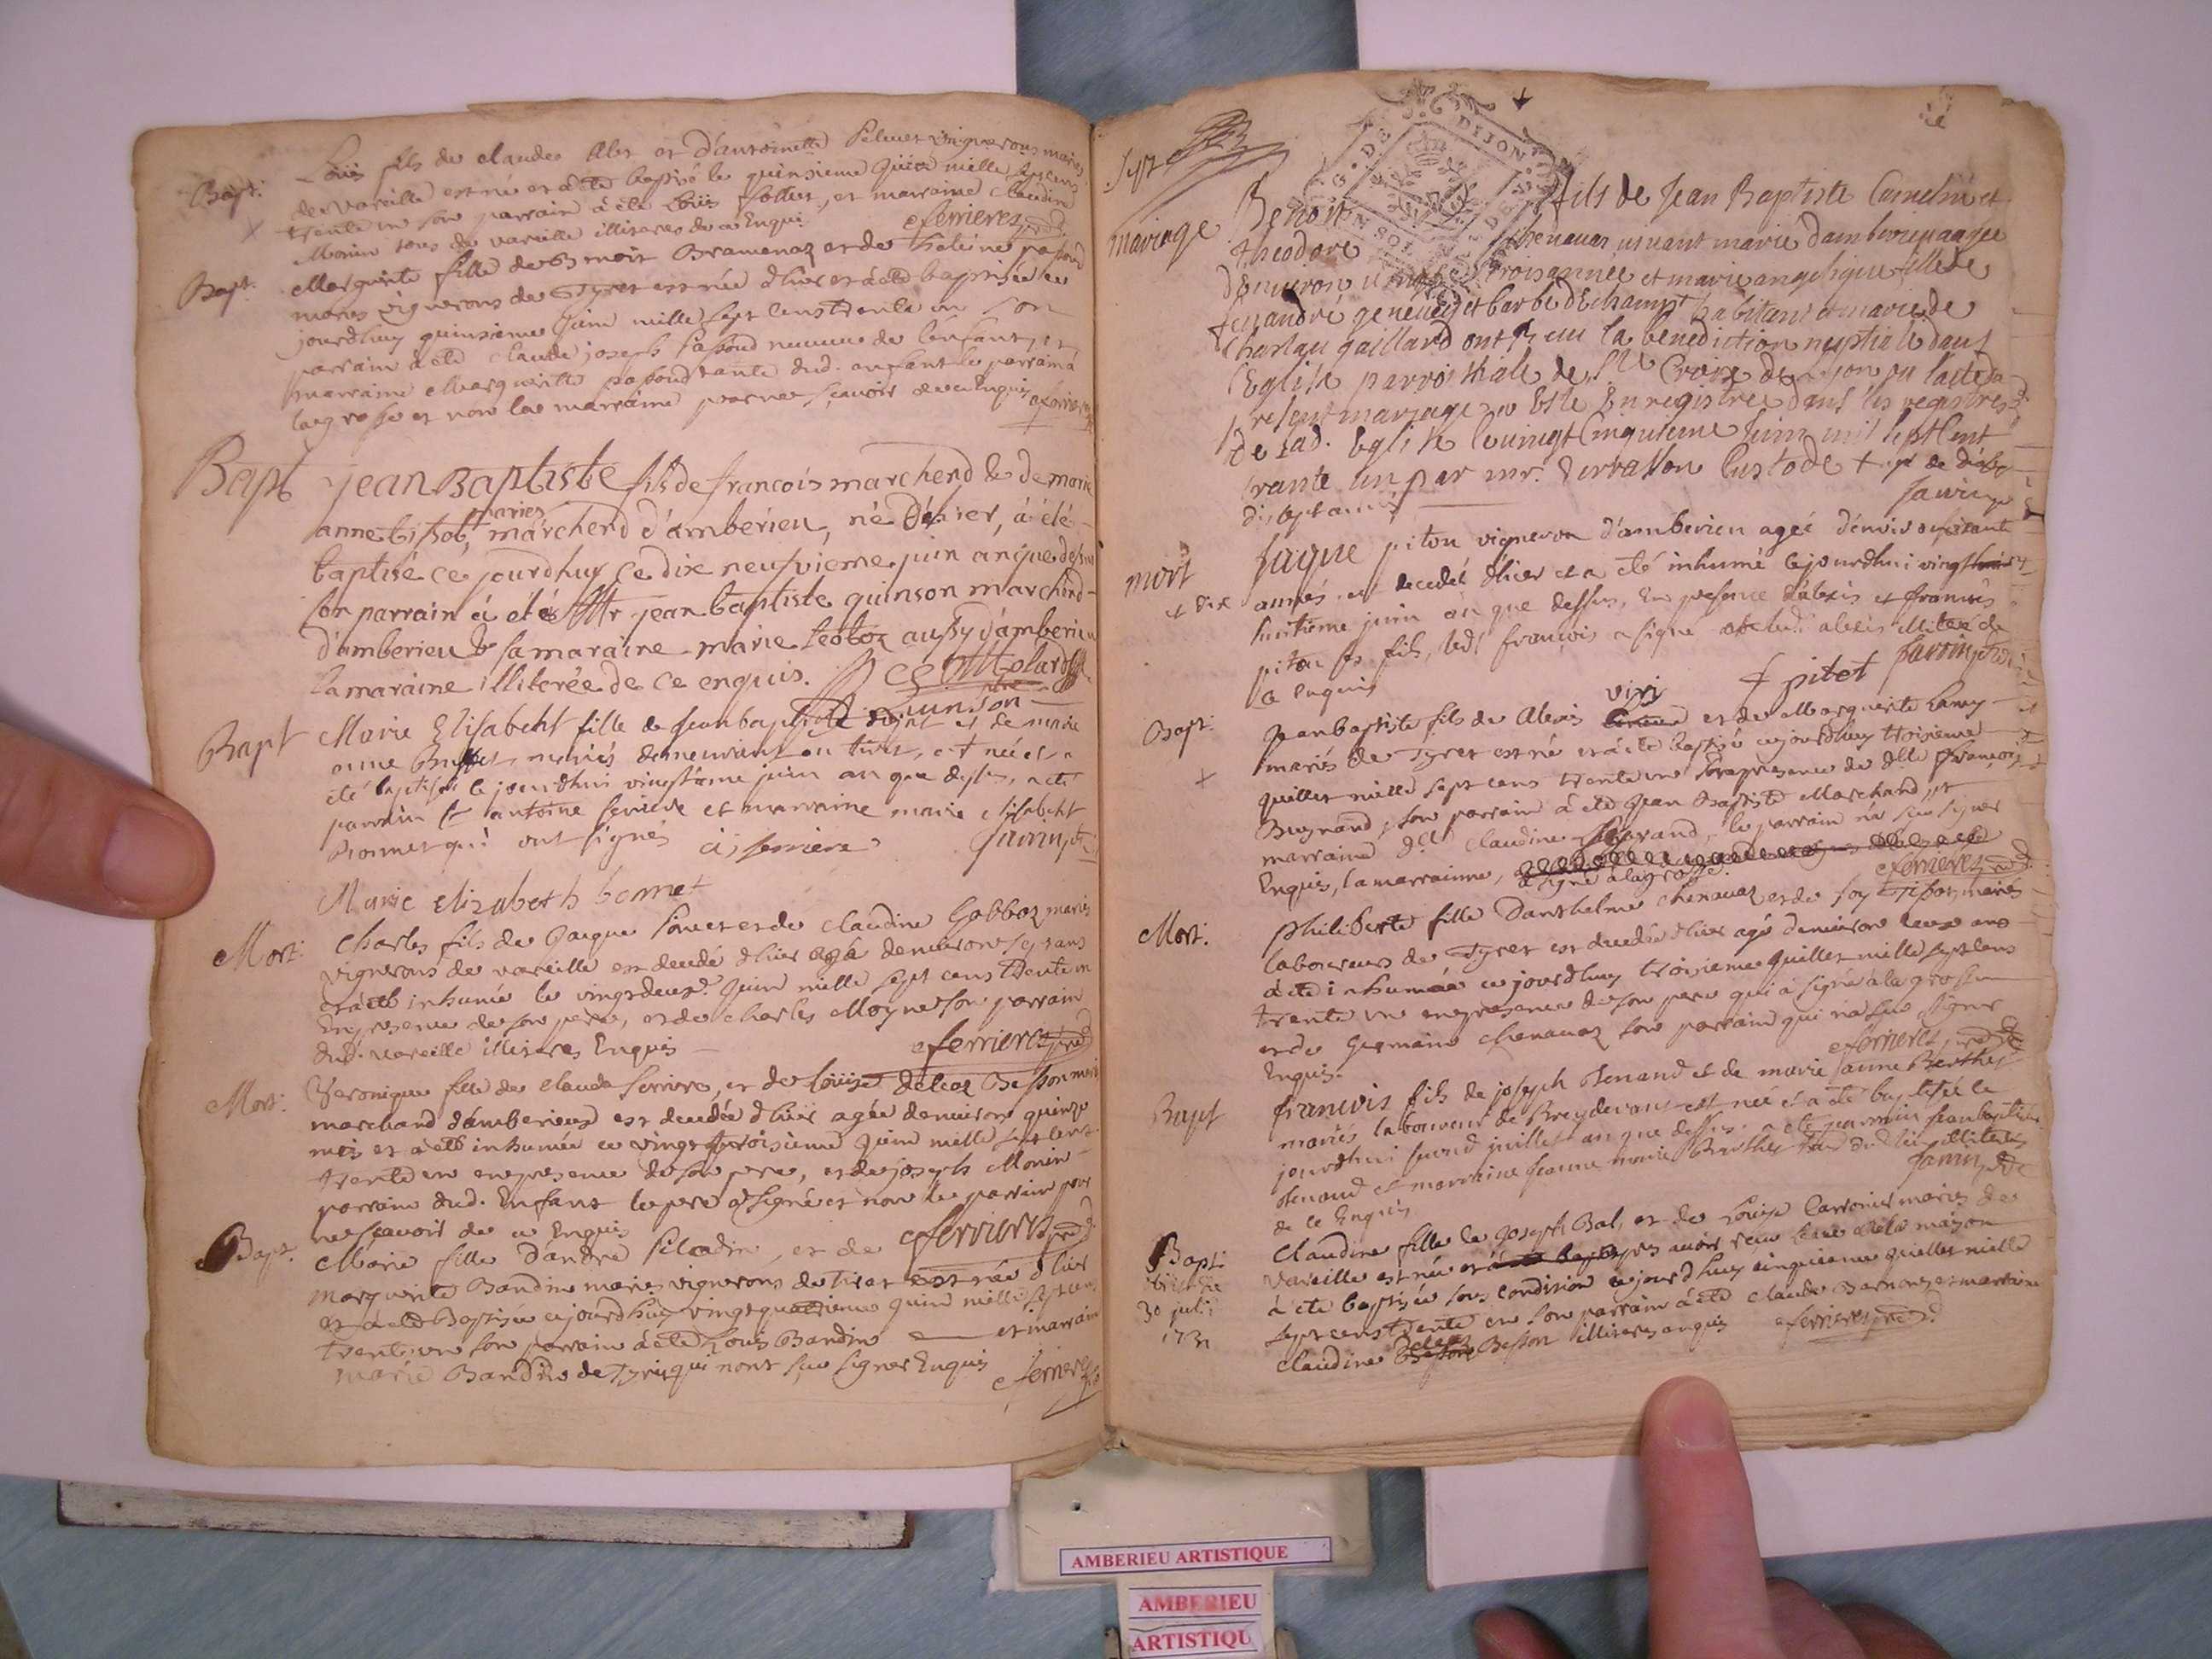 Bapt: Loüis fils de claude Alex et d'antoinette vignerons mariés
de vareille est né et a été baptisé le quinsieme Juin mille sept cens
trente un son parrain à été Loüis Follier, et marraine claudine
Monin tous de vareille illiteres de ce Enquis ferrieres
Bapt. Marguerite fille de Benoit Bramenaz et de
mariés vignerons de Tyret est née d'hier et à été baptisée ce
jourd'huy quinsieme Juin mille sept cens trente un son
parrain à été claude joseph de l'enfant, et
marraine Marguerite tante dud. enfant le parrain à
la grosse et non la marraine pour ne sçavoir de ce Enquis ferrieres
Bapt jean Baptiste fils de francois marchend & de marie
mariés
anne tissot, marchend d'amberieu, né d'hier, à été
baptisé ce jourdhuy ce dix neufvieme juin an que dessus
son parrain à été Mr jean baptiste quinson marchend
d'amberieu & sa maraine marie d'amberieu
la maraine illiterée de ce enquis.
quinson
Bapt Marie Elisabeht fille de jean baptiste et de marie
anne mariés demeurant au tiret, est née et a
été baptisée ce jourdhui vingtième juin an que dessus, a eté
parrain Sr antoine ferriere et marraine marie elisabeht
Bonnet qui ont signés à, ferriere Jamin ptre
Marie elizabeth bonnet
Mort: Charles fils de Jacque et de claudine Gabbaz mariés
vignerons de vareille est decedé d'hier agé denviron sept ans
et à été inhumé le vingt deux.e Juin mille sept cens trente un
En presence de son pere, et de charles Moyne son parrain
dud. vareille illiteres Enquis ferrieres
Mort: Veronique fille de claude ferriere, et de Loüise deleaz Besson mariés
marchand d'amberieux est decedée d'hier agée denviron quinze
mois et à été inhumée ce vingt troisieme Juin mille sept cens
trente un en presence de son pere, et de joseph Monin
parrain dud. Enfant le pere a signé et non le parrain pour
ne sçavoir de ce Enquis ferrieres
Bapt. Marie fille d'andré et de
marguerite Bandin mariés vignerons de tiret est née d'hier
et à été Baptisée ce jourd'huy vingt quatrieme Juin mille sept cens
trente un son parrain à été Louis Bandin et marraine
marie Bandin de Tyret qui n'ont sçu signer Enquis ferrieres
DIJON
mariage Benoit fils de Jean Baptiste et
theodore vivant marié d'amberieu agée
d'environ vingt trois année et marie angelique fille de
feu andré genevey et barbe dechamp habitant et marie de
gaillard ont receu la benediction nuptiale dans
l'Eglise parroissiale de Ste Croix de Lyon ou l'acte du
present mariage a esté Enregistrée dans les registres
de lad. Eglise le vingt cinquieme Juin mil sept cent
trante un par mr. custode
mort Jaque piton vigneron d'amberieu agée d'environ soixante
+ dix années est decedé d'hier et a été inhumé ce jourdhui vingt
huitième juin an que dessus, En presence d'alexis et francois
piton ses fils, led. francois a signé et led. alexis illiteré de
ce enquis f pitot Jamin ptre
viri
Bapt: Jean baptiste fils de Alexis et de Marguerite
mariés de Tyret est né et à été baptisé ce jourdhuy troisieme
Juillet mille sept cens trente un En presence de Dlle Françoise
Bugnand, son parrain à été Jean Baptiste Marchand, et
marraine dlle claudine le parrain n'a sçu signer
Enquis, la marrainne,
a signé a la grosse. ferrieres
Mort: philiberte fille d'anthelme chenavaz et de mariés
laboureurs de Tyret est decedée d'hier agé denviron deux ans
à été inhumée ce jourdhuy troisieme Juillet mille sept cens
trente un en presence de son pere qui à signé à la grosse
et de Germain chenavaz son parrain qui n'a sçu signer
Enquis. ferrieres
Bapt francois fils de joseph Tenand et de marie jeanne Berthet
mariés laboureur de Breydevant est née et a été baptisée ce
jourdhui second juillet an que dessus, a eté parrain jean baptiste
Tenand et marraine jeanne marie Berthet tous dud. lieu illiterés
de ce Enquis Jamin ptre
Bapt: Claudine fille de Joseph Bal, et de Loüise mariés de
vareille est née et apres avoir reçu l'eau de la maison
30 julii à été baptisée sous condition ce jourd'huy cinquieme Juillet mille
1731 sept cens trente un son parrain à été claude et marraine
claudine deleaz Besson illiteres enquis ferrieres
AMBERIEU ARTISTIQUE
AMBERIEU
ARTISTIQU